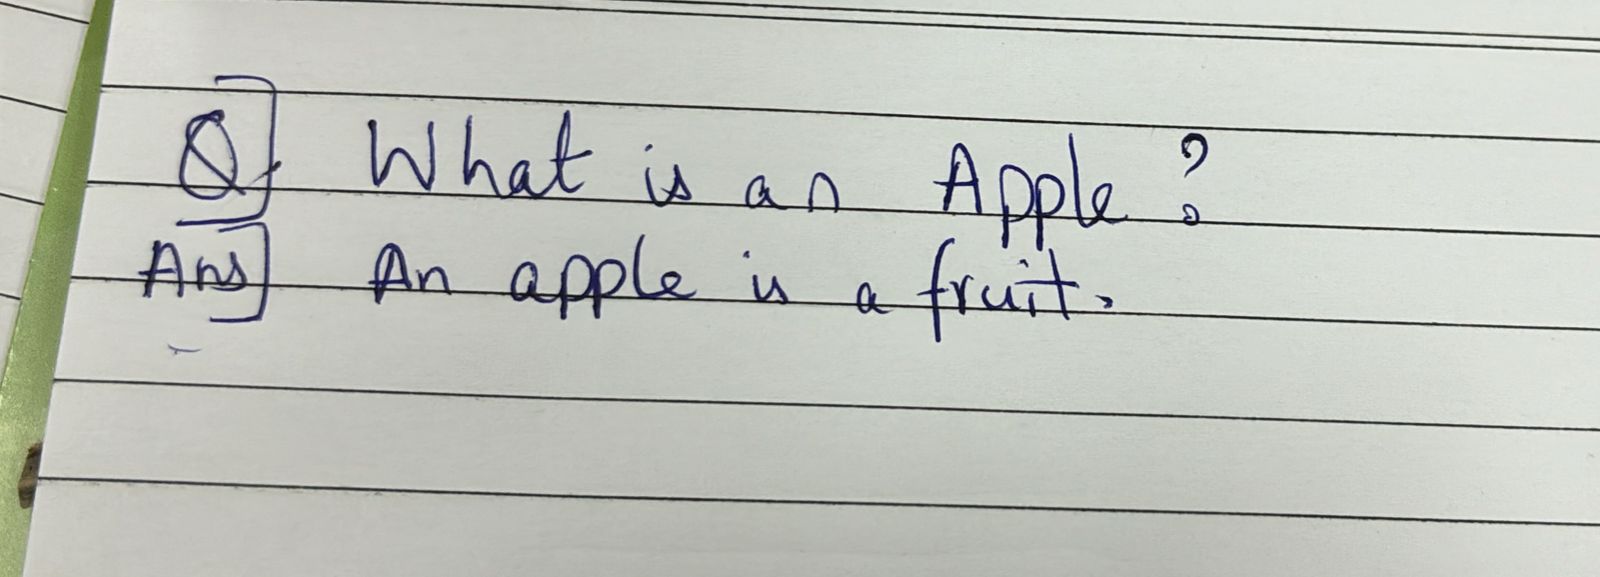 Q] What is an Apple?
Ans] An apple is a fruit.